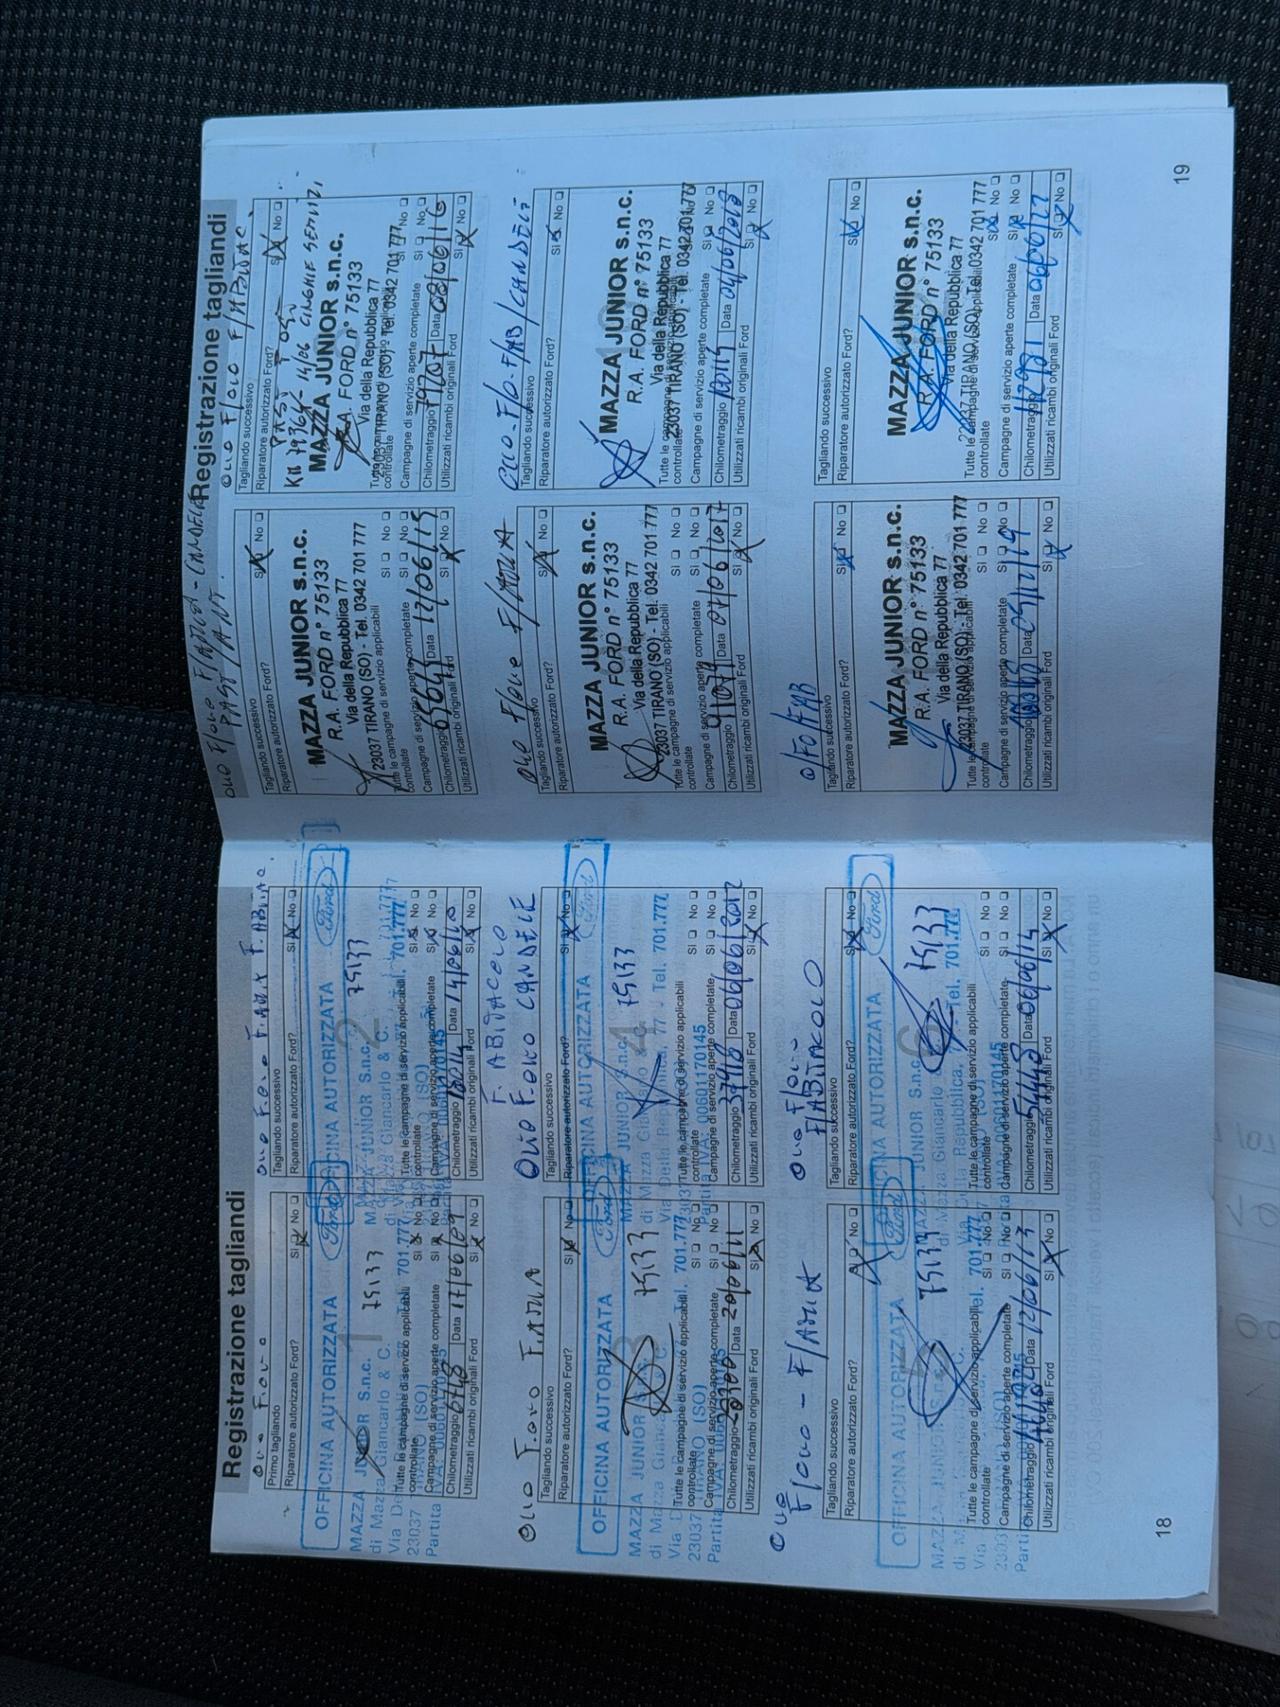 Registrazione tagliandi
OLIO F.OLIO
Primo tagliando
Riparatore autorizzato Ford?
SI No
OFFICINA AUTORIZZATA Ford
1 75133
MAZZA JUNIOR S.n.c.
di Mazza Giancarlo & C.
Tutte le campagne di servizio applicabili
controllate SI No
23037 TIRANO (SO)
Campagne di servizio aperte completate SI No
Chilometraggio Data 17/06/09
Utilizzati ricambi originali Ford SI No
OLIO F.OLIO F.ARIA F. ABITAC.
Tagliando successivo
Riparatore autorizzato Ford?
SI No
OFFICINA AUTORIZZATA Ford
2 75133
MAZZA JUNIOR S.n.c.
di Mazza Giancarlo & C.
Tutte le campagne di servizio applicabili
controllate SI No
Campagne di servizio aperte completate SI No
Chilometraggio Data 14/06/10
Utilizzati ricambi originali Ford SI No
OLIO F.OLIO F.ARIA
Tagliando successivo
Riparatore autorizzato Ford?
SI No
OFFICINA AUTORIZZATA Ford
3 75133
MAZZA JUNIOR S.n.c.
di Mazza Giancarlo & C.
Tel. 701.777
Tutte le campagne di servizio applicabili
controllate SI No
23037 TIRANO (SO)
Campagne di servizio aperte completate SI No
Chilometraggio Data 20/06/11
Utilizzati ricambi originali Ford SI No
F. ABITACOLO
OLIO F.OLIO CANDELE
Tagliando successivo
Riparatore autorizzato Ford?
SI No
OFFICINA AUTORIZZATA Ford
4 75133
MAZZA JUNIOR S.n.c.
di Mazza Giancarlo & C.
Via Della Repubblica, 77 - Tel. 701.777
Tutte le campagne di servizio applicabili
controllate SI No
Partita IVA 00601170145
Campagne di servizio aperte completate SI No
Chilometraggio 37418 Data 06/06/2012
Utilizzati ricambi originali Ford SI No
OLIO
F/OLIO - F/ARIA
Tagliando successivo
Riparatore autorizzato Ford?
No
OFFICINA AUTORIZZATA Ford
5 75133
MAZZA JUNIOR S.n.c.
Tel. 701.777
Tutte le campagne di servizio applicabili
controllate SI No
Campagne di servizio aperte completate SI No
Chilometraggio Data 12/06/13
Utilizzati ricambi originali Ford SI No
OLIO F/OLIO
F/ABITACOLO
Tagliando successivo
Riparatore autorizzato Ford?
SI No
OFFICINA AUTORIZZATA Ford
6 75133
MAZZA JUNIOR S.n.c.
di Mazza Giancarlo
Via Della Repubblica, Tel. 701.777
Tutte le campagne di servizio applicabili
controllate SI No
Campagne di servizio aperte completate SI No
Chilometraggio 54448 Data 06/06/14
Utilizzati ricambi originali Ford SI No
18
Registrazione tagliandi
OLIO F/OLIO F/ARIA - CANDELE
PAST/ANT.
Tagliando successivo
Riparatore autorizzato Ford?
SI No
MAZZA JUNIOR s.n.c.
R.A. FORD n° 75133
Via della Repubblica 77
23037 TIRANO (SO) - Tel. 0342 701 777
Tutte le campagne di servizio applicabili
controllate SI No
Campagne di servizio aperte completate SI No
Chilometraggio 65641 Data 12/06/15
Utilizzati ricambi originali Ford SI No
OLIO F/OLIO F/ABITAC.
Tagliando successivo
Riparatore autorizzato Ford?
SI No
PAST
KM 79764 - 14/06 CINGHIE SERVIZI
MAZZA JUNIOR s.n.c.
R.A. FORD n° 75133
Via della Repubblica 77
23037 TIRANO (SO) - Tel. 0342 701 777
controllate
Campagne di servizio aperte completate SI No
Chilometraggio 79707 Data 08/06/16
Utilizzati ricambi originali Ford SI No
OLIO F/OLIO F/ARIA
Tagliando successivo
Riparatore autorizzato Ford?
SI No
MAZZA JUNIOR s.n.c.
R.A. FORD n° 75133
Via della Repubblica 77
23037 TIRANO (SO) - Tel. 0342 701 777
Tutte le campagne di servizio applicabili
controllate SI No
Campagne di servizio aperte completate SI No
Chilometraggio 91074 Data 07/06/2017
Utilizzati ricambi originali Ford SI No
OLIO-F/O-F/AB/CANDELE
Tagliando successivo
Riparatore autorizzato Ford?
SI No
MAZZA JUNIOR s.n.c.
R.A. FORD n° 75133
Via della Repubblica 77
23037 TIRANO (SO) - Tel. 0342 701 777
Tutte le campagne di servizio applicabili
controllate
Campagne di servizio aperte completate SI No
Chilometraggio 100119 Data 04/06/2018
Utilizzati ricambi originali Ford SI No
O/FO/FAB
Tagliando successivo
Riparatore autorizzato Ford?
SI No
MAZZA JUNIOR s.n.c.
R.A. FORD n° 75133
Via della Repubblica 77
23037 TIRANO (SO) - Tel. 0342 701 777
Tutte le campagne di servizio applicabili
controllate SI No
Campagne di servizio aperte completate SI No
Chilometraggio Data 05/12/19
Utilizzati ricambi originali Ford SI No
Tagliando successivo
Riparatore autorizzato Ford?
SI No
MAZZA JUNIOR s.n.c.
R.A. FORD n° 75133
Via della Repubblica 77
23037 TIRANO (SO) - Tel. 0342 701 777
Tutte le campagne di servizio applicabili
controllate SI No
Campagne di servizio aperte completate SI No
Chilometraggio 117281 Data 06/06/22
Utilizzati ricambi originali Ford SI No
19